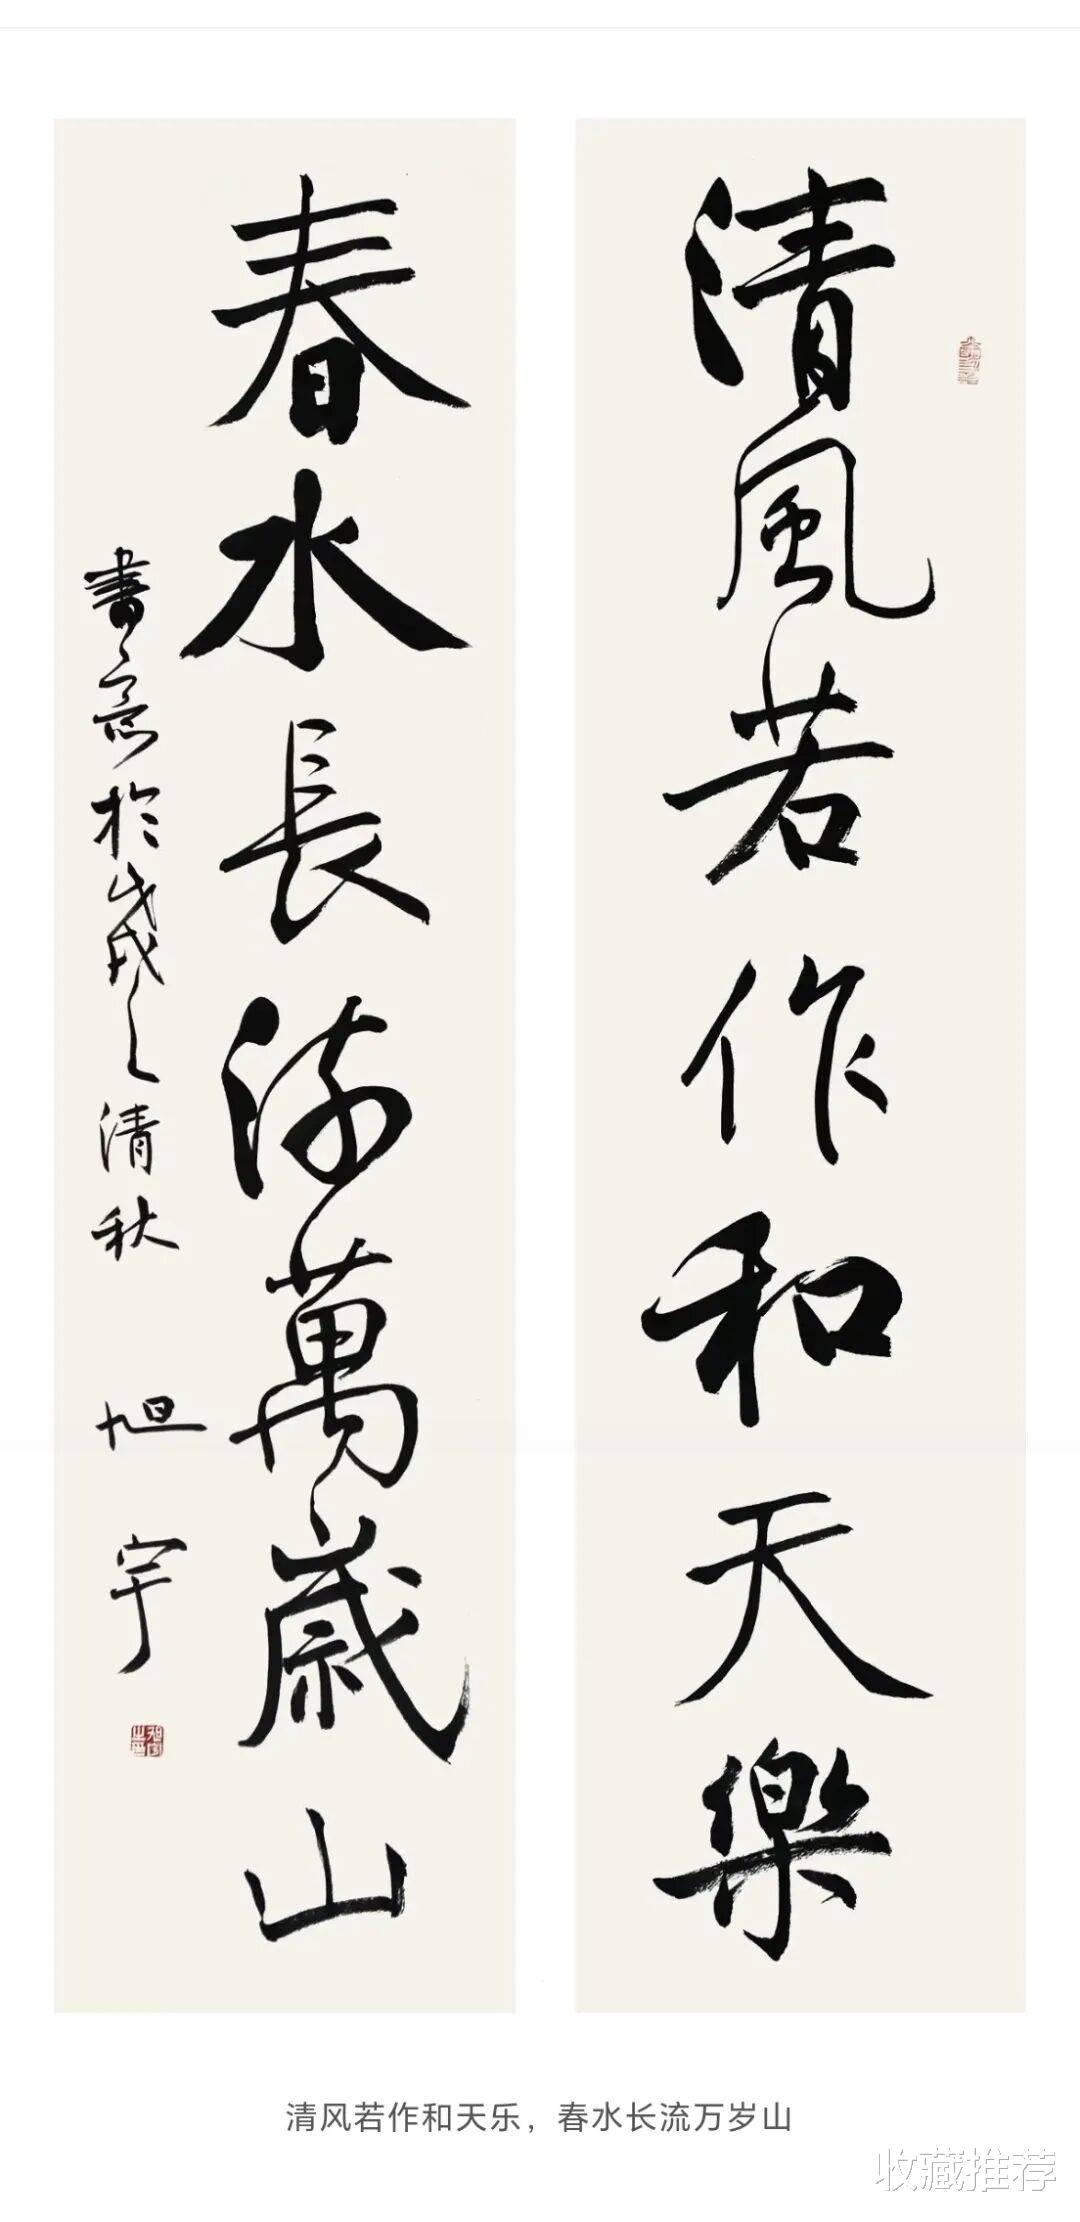 清風若作和天樂
春水長流萬歲山
書意於戊戌之清秋 旭宇
清风若作和天乐，春水长流万岁山
收藏推荐